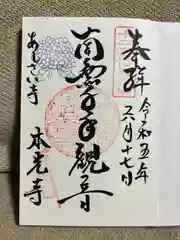 奉拝
令和五年
六月十七日
南無千手観音
あじさい寺
本光寺